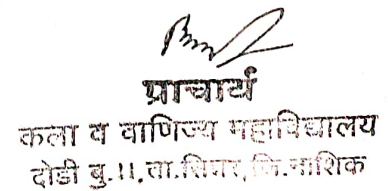 प्राचार्य
कला व वाणिज्य महाविद्यालय
दोडी बु.।।, ता.सिन्नर, जि.नाशिक